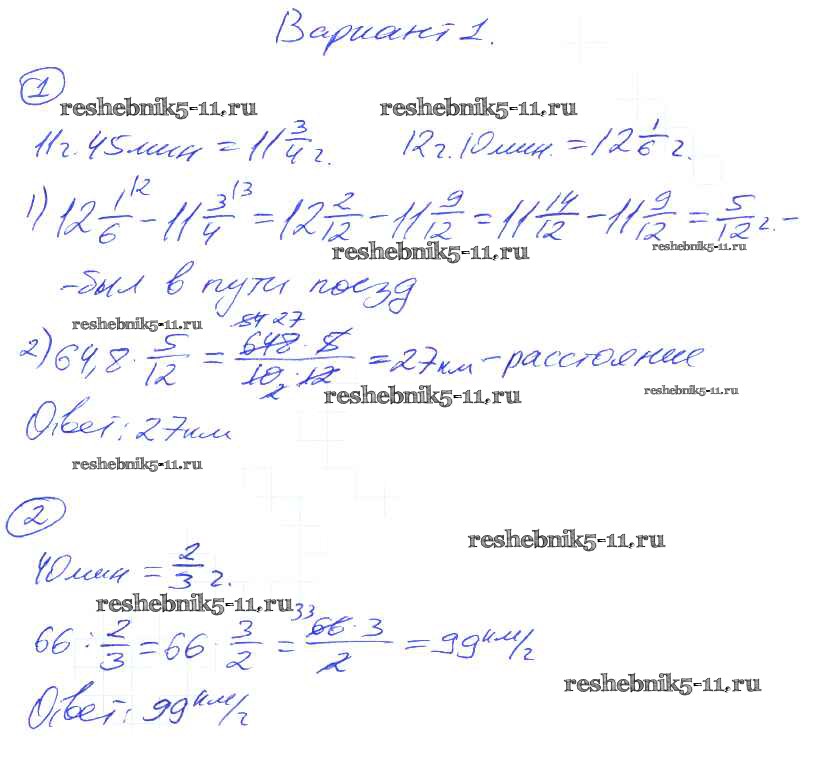 Вариант 1.
1
reshebnik5-11.ru reshebnik5-11.ru
11ч.45мин = 11 3/4 ч. 12ч.10мин. = 12 1/6 ч.
1) 12 1/6 /2 - 11 3/4 /3 = 12 2/12 - 11 9/12 = 11 14/12 - 11 9/12 = 5/12 ч. -
reshebnik5-11.ru reshebnik5-11.ru
- был в пути поезд
reshebnik5-11.ru
54 27
2) 64,8 · 5/12 = 648 · 5 / 10 · 12 = 27км - расстояние
2
reshebnik5-11.ru reshebnik5-11.ru
Ответ: 27км
reshebnik5-11.ru
2
reshebnik5-11.ru
40мин = 2/3 ч.
reshebnik5-11.ru
66 : 2/3 = 66 · 3/2 = 33 66 · 3 / 2 = 99 км/ч
reshebnik5-11.ru
Ответ: 99 км/ч